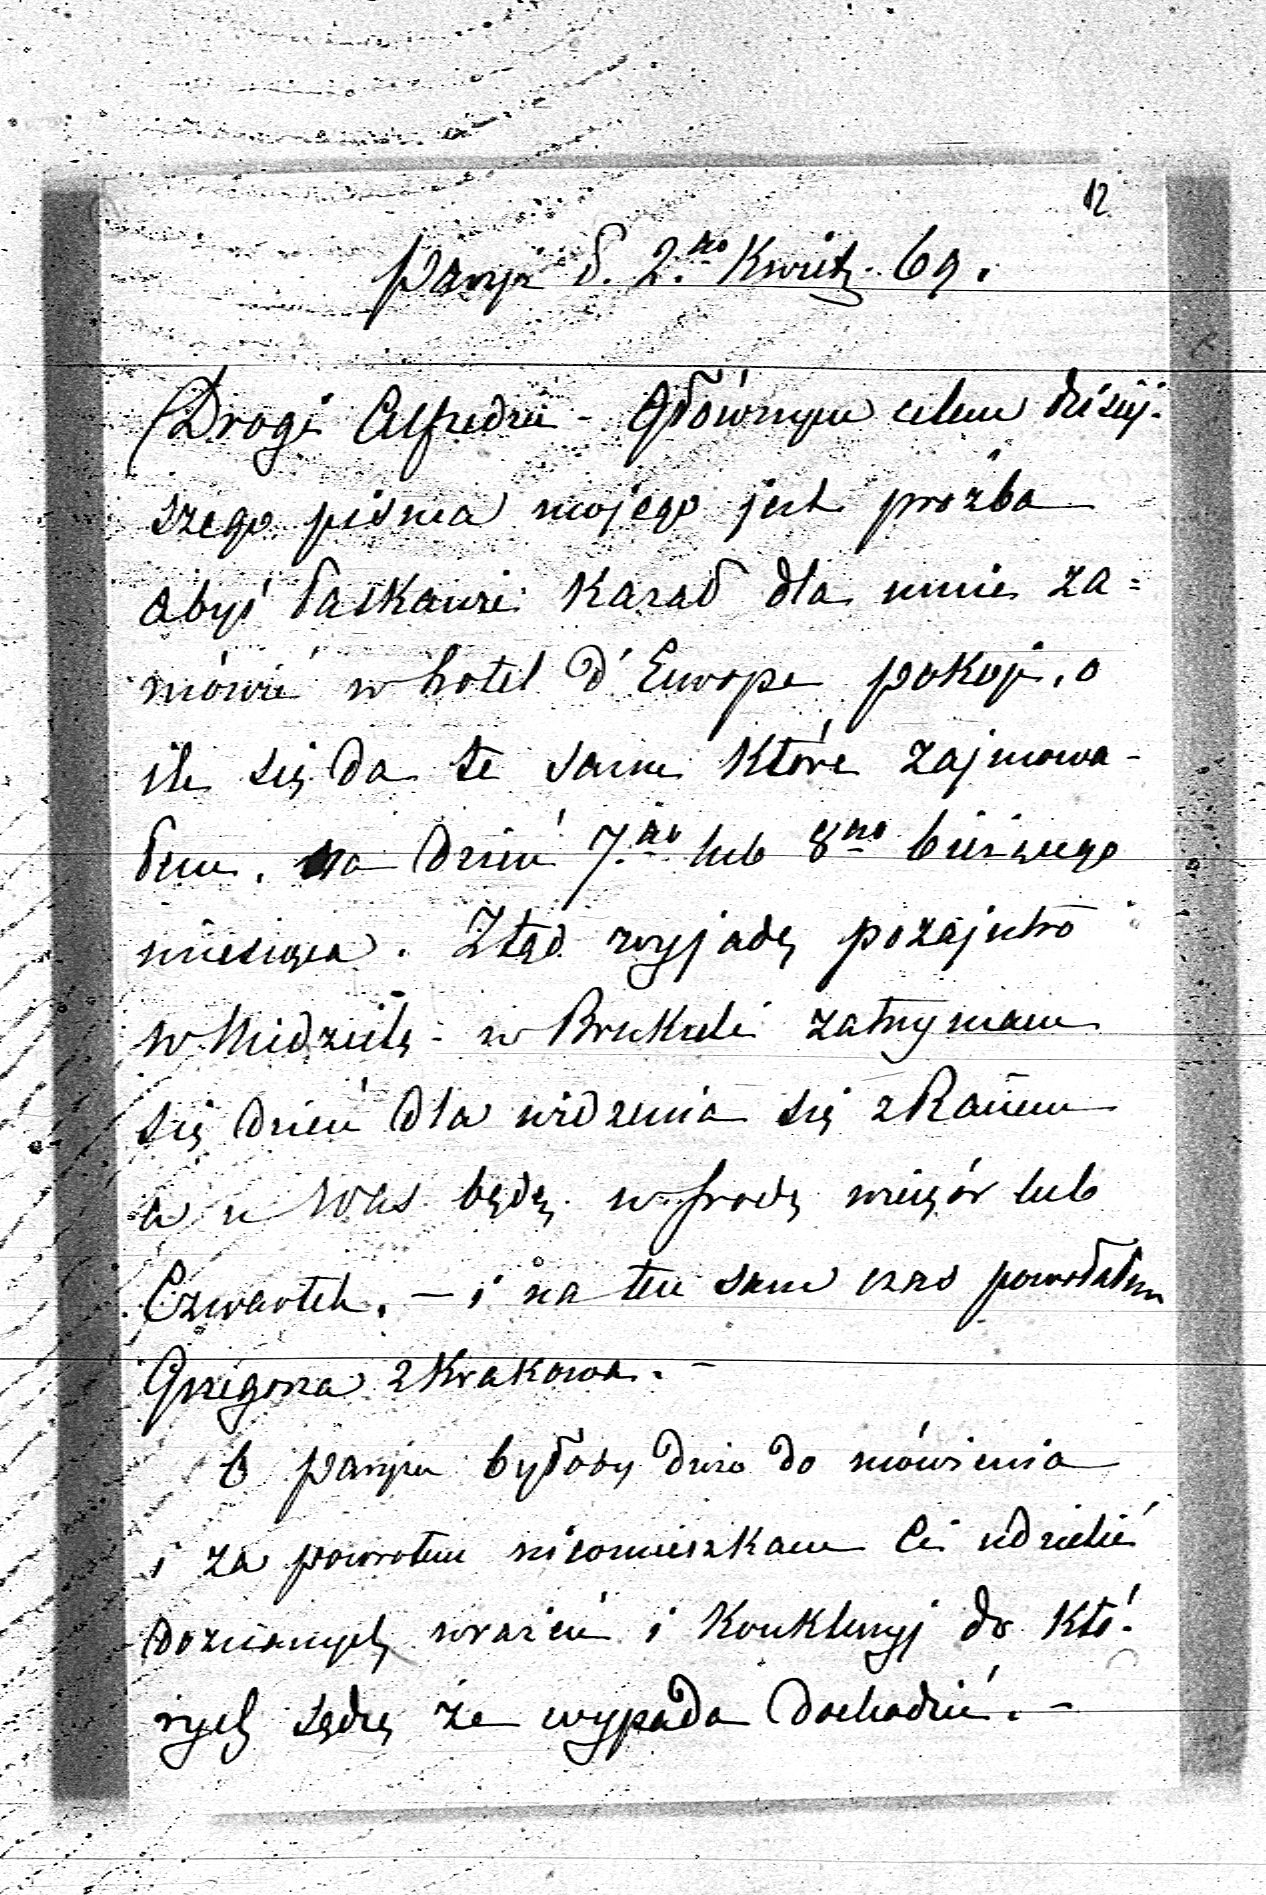 12
Paryż d. 2.go Kwiet. 69.
Drogi Alfredzie - Głównym celem dzisiej-
szego pisma mojego jest prożba
abyś łaskawie kazał dla mnie za=
mówić w hotel d'Europe pokoje, o
ile się da te same które zajmowa-
łem, na dzień 7.go lub 8go bieżącego
miesiąca. Ztąd wyjadę pozajutro
w Niedzielę - w Brukseli zatrzymam
się dzień dla widzenia się z
a u Was będę w środę wieczór lub
Czwartek. — i na ten sam czas powołałem
Grzegorza z Krakowa. —
O Paryżu byłoby dużo do mówienia
i za powrotem nieomieszkam Ci udzielić
doznanych wrażeń i konkluzyj do któ-
rych sądzę że wypada dochodzić. —